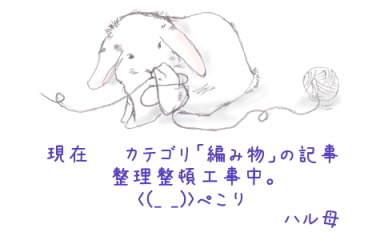 現在　カテゴリ「編み物」の記事
整理整頓工事中。
<((_ _)>ぺこり
ハル母